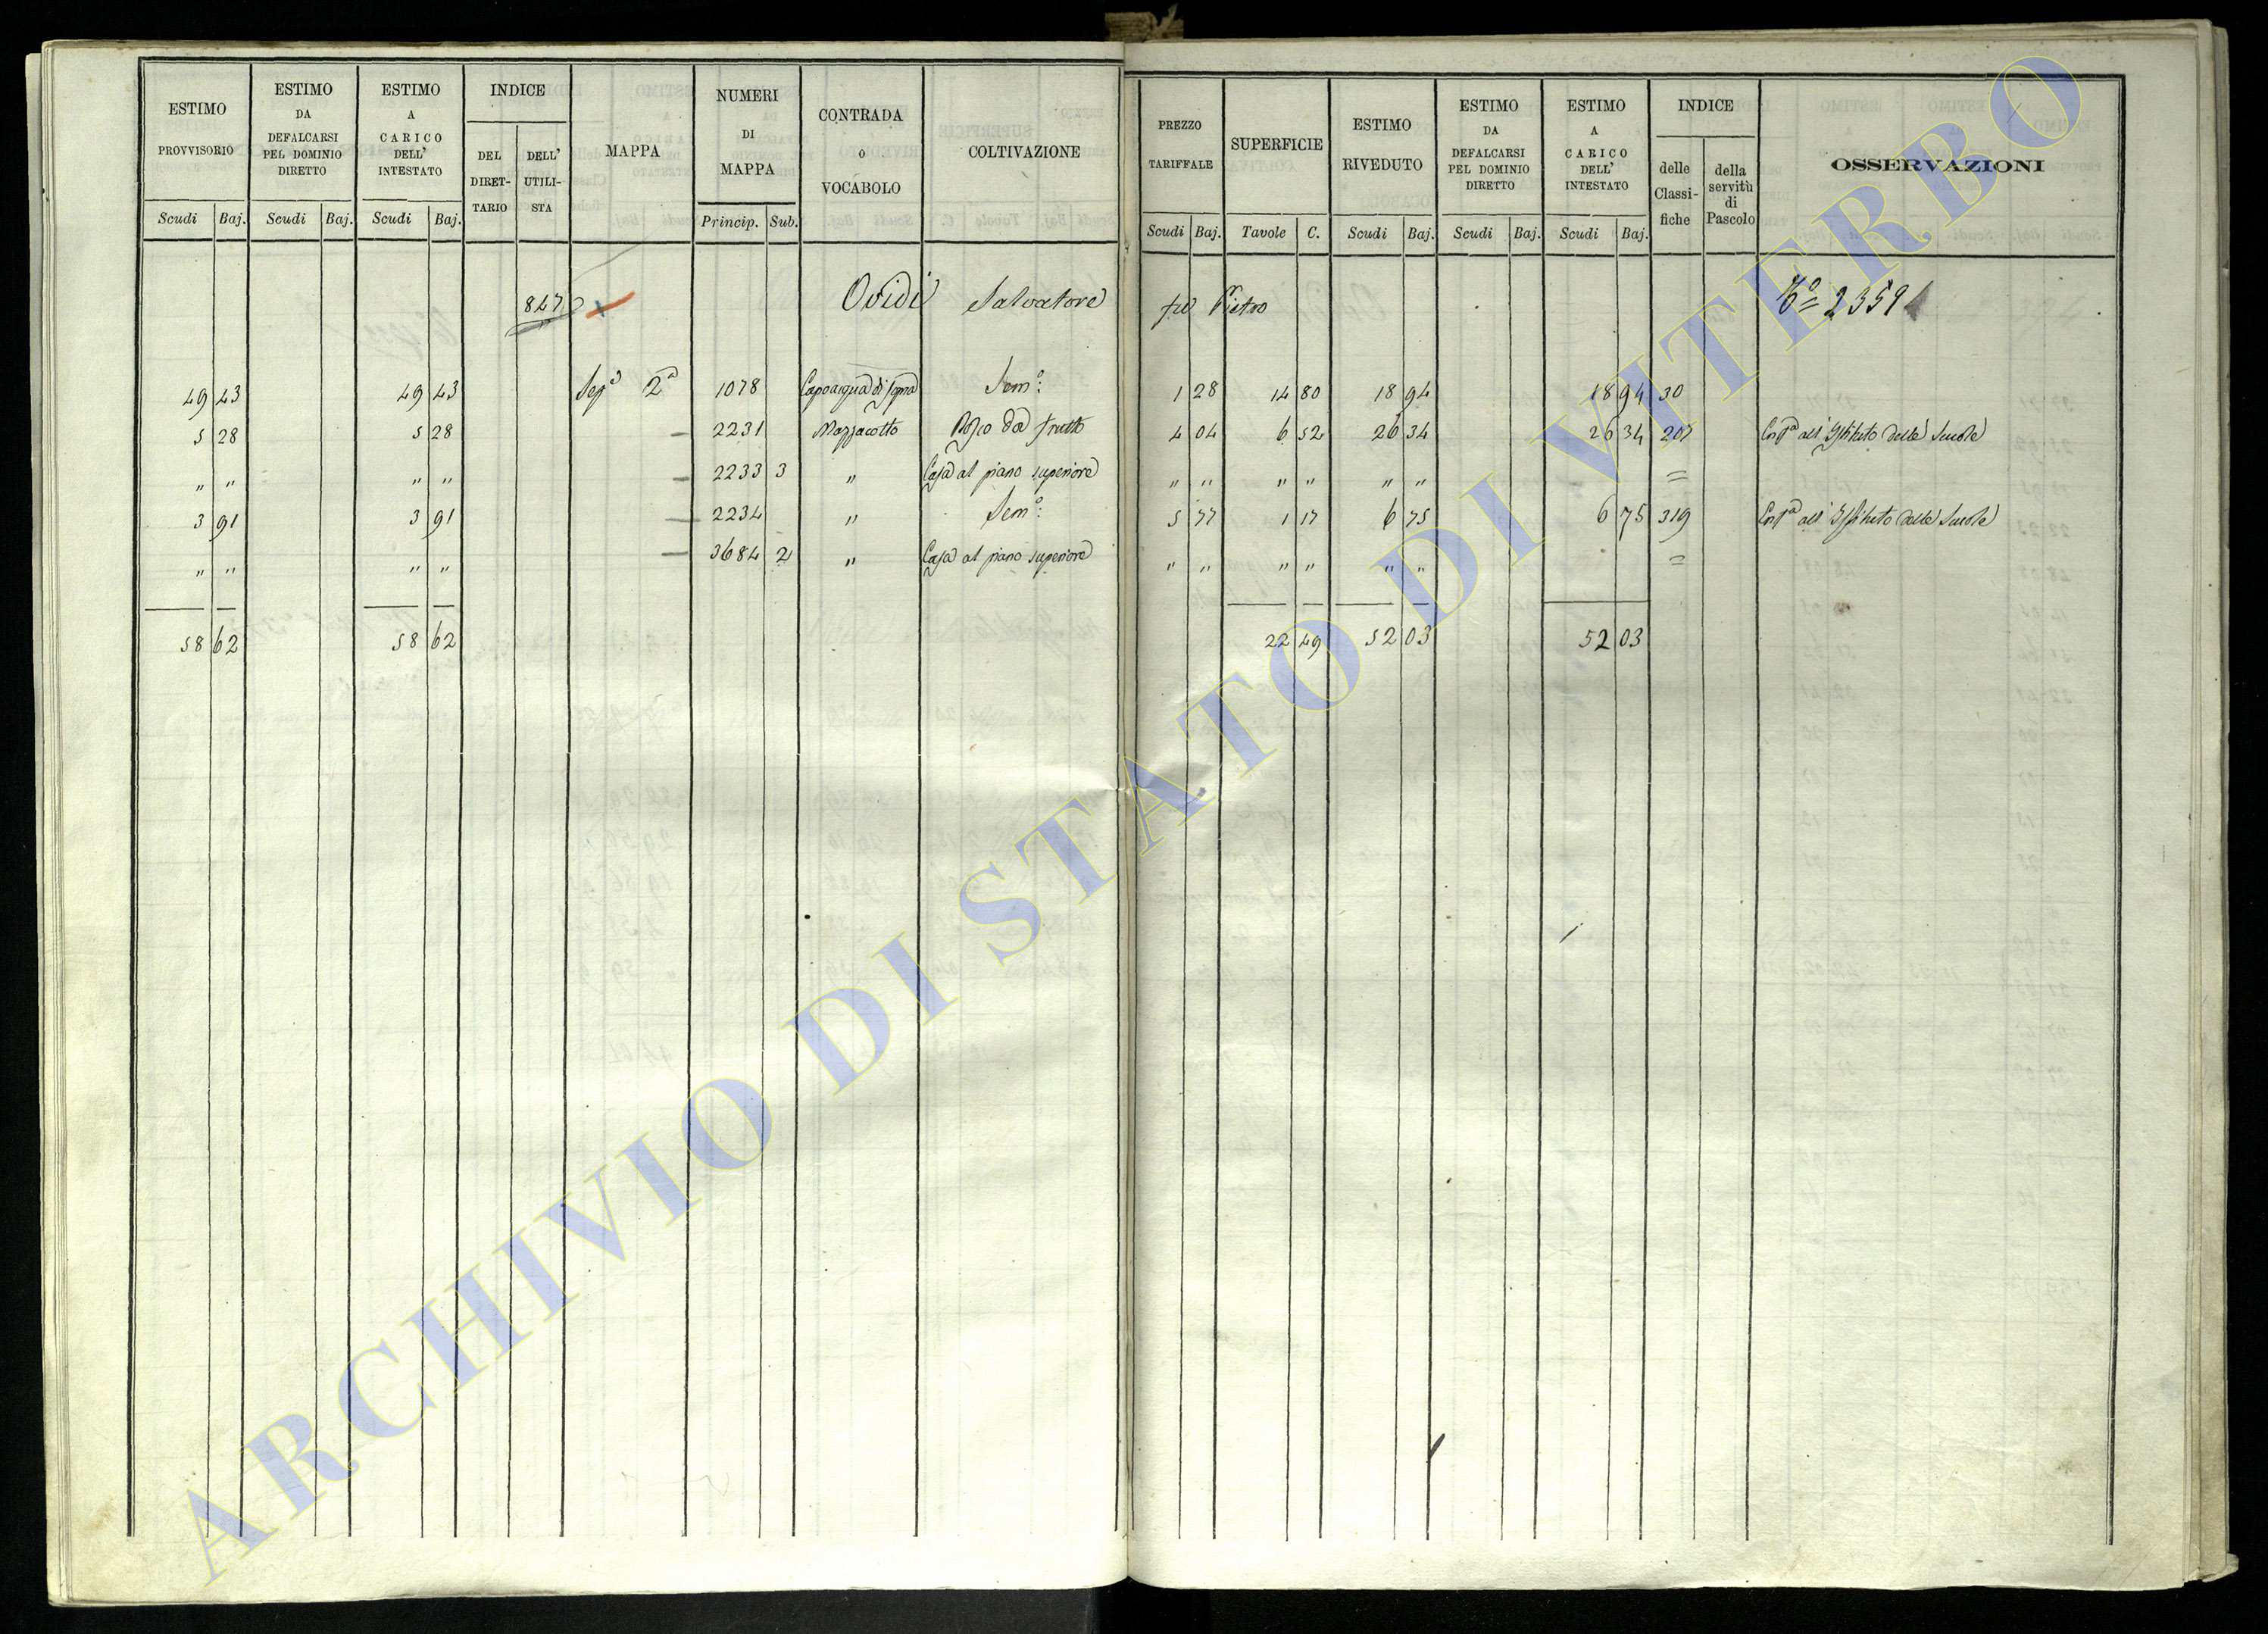 ESTIMO PROVVISORIO Scudi Baj.
ESTIMO DA DEFALCARSI PEL DOMINIO DIRETTO Scudi Baj.
ESTIMO A CARICO DELL' INTESTATO Scudi Baj.
INDICE DEL DIRETTARIO DELL' UTILISTA
MAPPA
NUMERI DI MAPPA Princip. Sub.
CONTRADA O VOCABOLO
COLTIVAZIONE
PREZZO TARIFFALE Scudi Baj.
SUPERFICIE Tavole C.
ESTIMO RIVEDUTO Scudi Baj.
ESTIMO DA DEFALCARSI PEL DOMINIO DIRETTO Scudi Baj.
ESTIMO A CARICO DELL' INTESTATO Scudi Baj.
INDICE delle Classifiche della servitù di Pascolo
OSSERVAZIONI
847 Ovidi Salvatore fu Pietro 2359
49 43 49 43 Sez.e 2a 1078 Sem.o: 1 28 14 80 18 94 18 94 30
5 28 5 28 — 2231 Mazzacotto da frutto 4 04 6 52 26 34 26 34 207 all'Istituto delle Scuole
" " " " — 2233 3 " Casa al piano superiore " " " " " " =
3 91 3 91 — 2234 " Sem.o: 5 77 1 17 6 75 6 75 319 all'Istituto delle Scuole
" " " " — 3684 2 " Casa al piano superiore " " " " " " =
58 62 58 62 22 49 52 03 52 03
ARCHIVIO DI STATO DI VITERBO